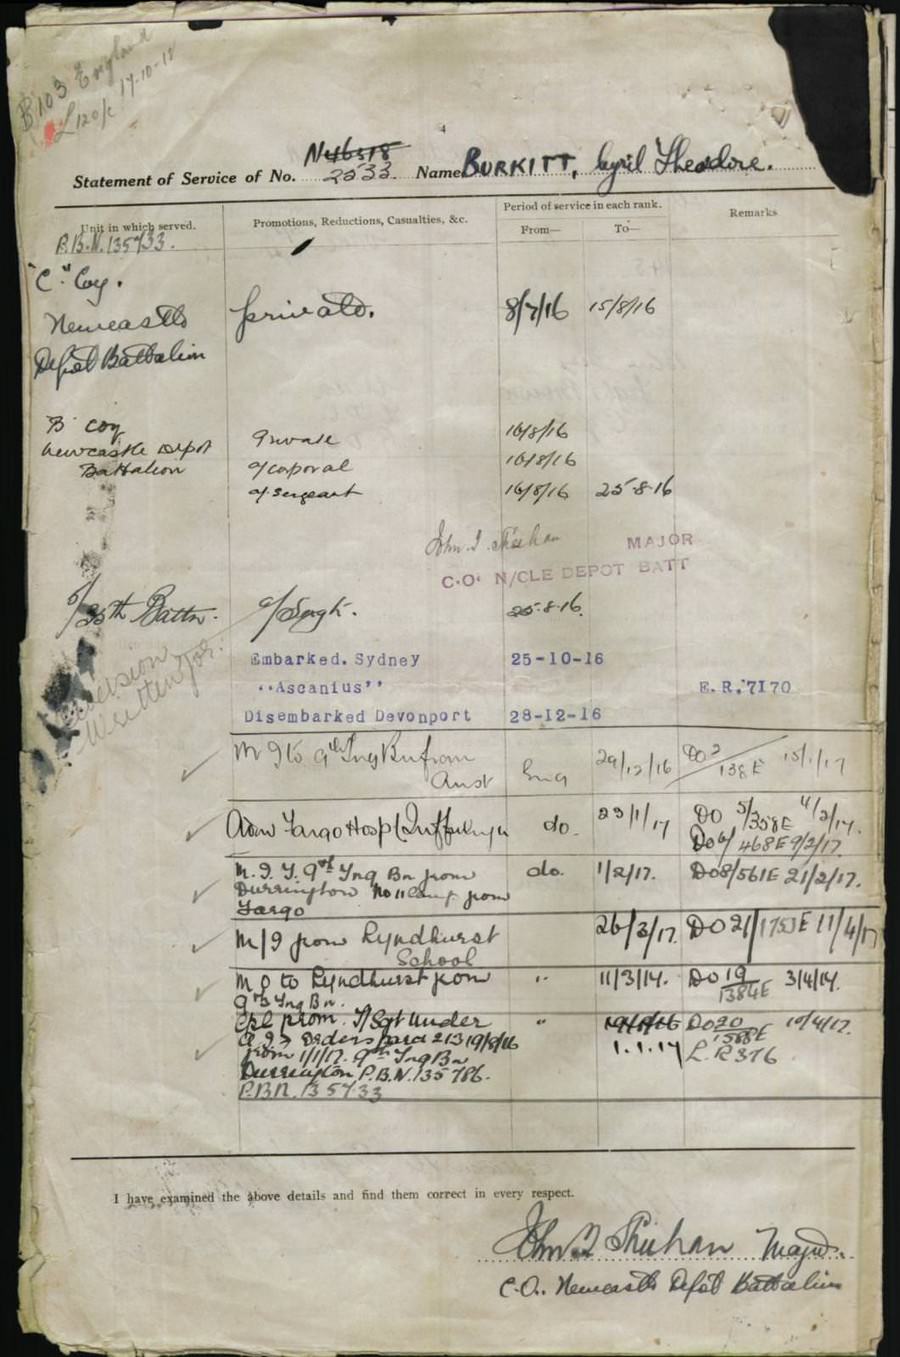 B103 England
L120/c 17-10-18
4
N46518
Statement of Service of No. 2533. Name BURKITT, Cyril Theodore.
Unit in which served. Promotions, Reductions, Casualties, &c. Period of service in each rank. Remarks
From— To—
P.B.N. 135733.
"C." Coy.
Newcastle Private. 8/7/16 15/8/16
Depôt Battalion
B Coy
Newcastle Depot Private 16/8/16
Battalion a/corporal 16/8/16
a/Sergeant 16/8/16 25-8-16
John J. Sheehan MAJOR
C.O. N/CLE DEPOT BATT
5/35th Battn. a/Sergt. 25-8-16.
Written for.
Embarked. Sydney 25-10-16
"Ascanius" E.R. 7170
Disembarked Devonport 28-12-16
M I to 9th Tng Bn from Aust Eng 29/12/16 DO 2/138E 15/1/17
Adm Fargo Hosp do. 23/1/17 DO 5/358E 4/2/17.
DO 6/468E 9/2/17.
M.I.T. 9th Tng Bn from do. 1/2/17. DO 8/561E 21/2/17.
Durrington No 11 Camp from
Fargo
M/I from Lyndhurst 26/3/17. DO 21/1753E 11/4/17
School
M O to Lyndhurst from " 11/3/17. DO 19/1384E 3/4/17.
9th Tng Bn.
Cpl prom. T/Sgt under " 19/8/16 DO 20/1588E 10/4/17.
A.I.F Orders para 213 19/8/16
from 1/1/17. 9th Tng Bn 1.1.17 L.R376
Durrington P.B.N. 135786.
P.B.N. 135733
I have examined the above details and find them correct in every respect.
John J Sheehan Major.
C.O. Newcastle Depôt Battalion